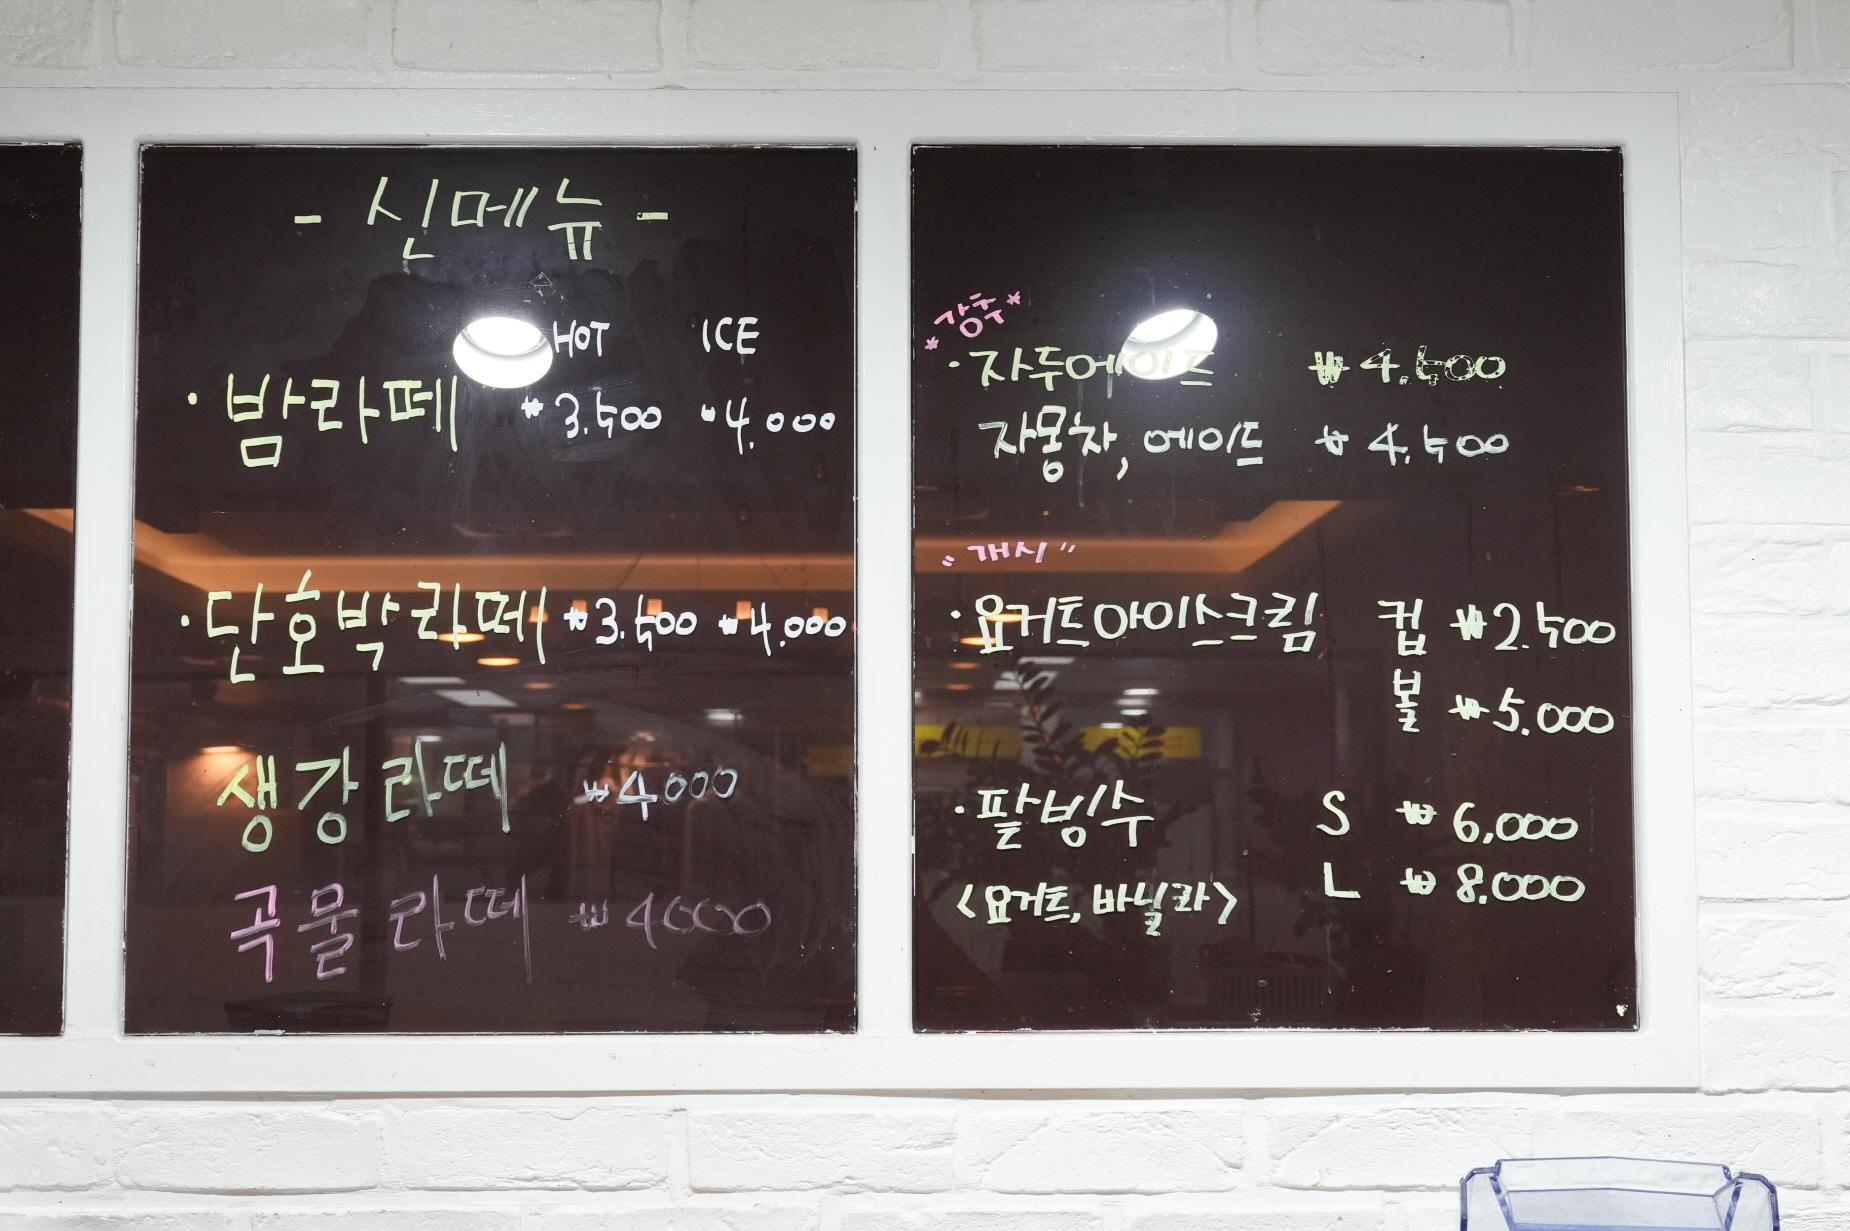 - 신메뉴 -
HOT ICE
· 밤라떼 ₩3.500 ₩4.000
· 단호박라떼 ₩3.500 ₩4.000
생강라떼 ₩4000
곡물라떼 ₩4000
*강추*
· 자두에이드 ₩4.500
자몽차, 에이드 ₩4.500
"개시"
· 요거트아이스크림 컵 ₩2.500
볼 ₩5.000
· 팥빙수 S ₩6,000
<요거트, 바닐라> L ₩8.000